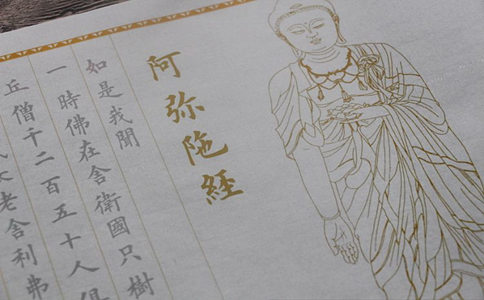 阿弥陁經
如是我聞
一時佛在舍衛國只樹
丘僧千二百五十人俱
老舍利弗